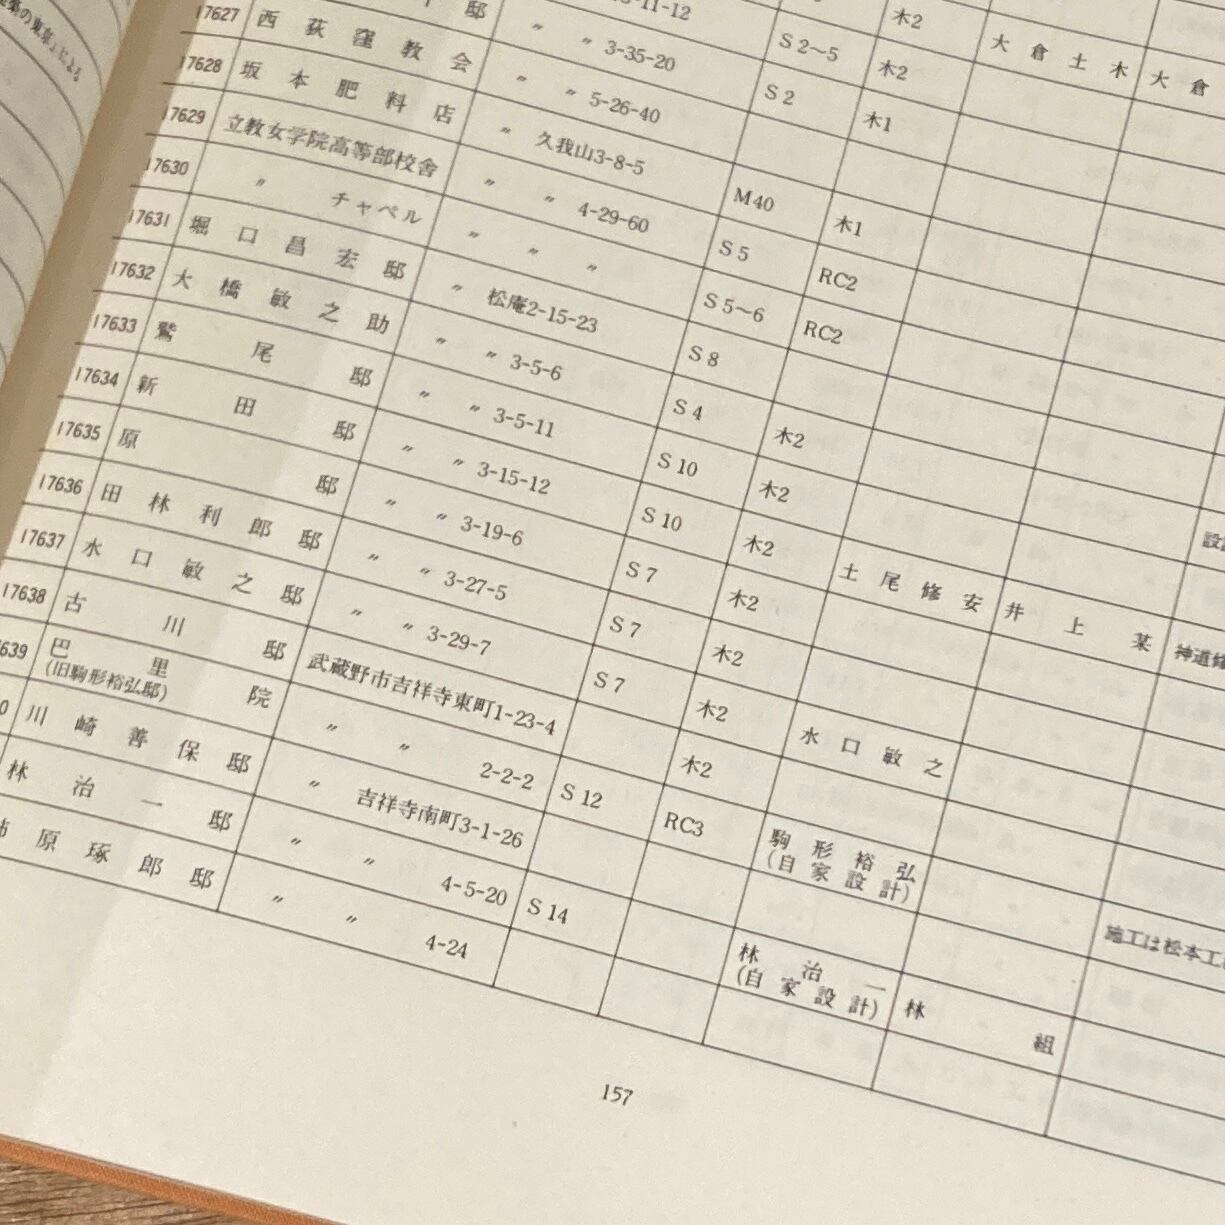 築の東京」による
木2 大倉土木 大倉
-11-12 S2～5 木2
邸 〃 〃 3-35-20 S2 木1
17627 西荻窪教会 〃 〃 5-26-40
17628 坂本肥料店 〃 久我山3-8-5 M40 木1
17629 立教女学院高等部校舎 〃 〃 4-29-60 S5 RC2
17630 〃 チャペル 〃 〃 〃 S5～6 RC2
17631 堀口昌宏邸 〃 松庵2-15-23 S8
17632 大橋敏之助 〃 〃 3-5-6 S4 木2 設計
17633 鷲尾邸 〃 〃 3-5-11 S10 木2
17634 新田邸 〃 〃 3-15-12 S10 木2 土尾修安 井上某 神道修
17635 原邸 〃 〃 3-19-6 S7 木2
17636 田林利郎邸 〃 〃 3-27-5 S7 木2
17637 水口敏之邸 〃 〃 3-29-7 S7 木2 水口敏之
17638 古川邸 武蔵野市吉祥寺東町1-23-4 木2
639 巴里院 〃 〃 2-2-2 S12 RC3 駒形裕弘
(旧駒形裕弘邸) (自家設計) 施工は松本工
0 川崎善保邸 〃 吉祥寺南町3-1-26
林治一邸 〃 〃 4-5-20 S14 林治一 林組
(自家設計)
原琢郎邸 〃 〃 4-24
157